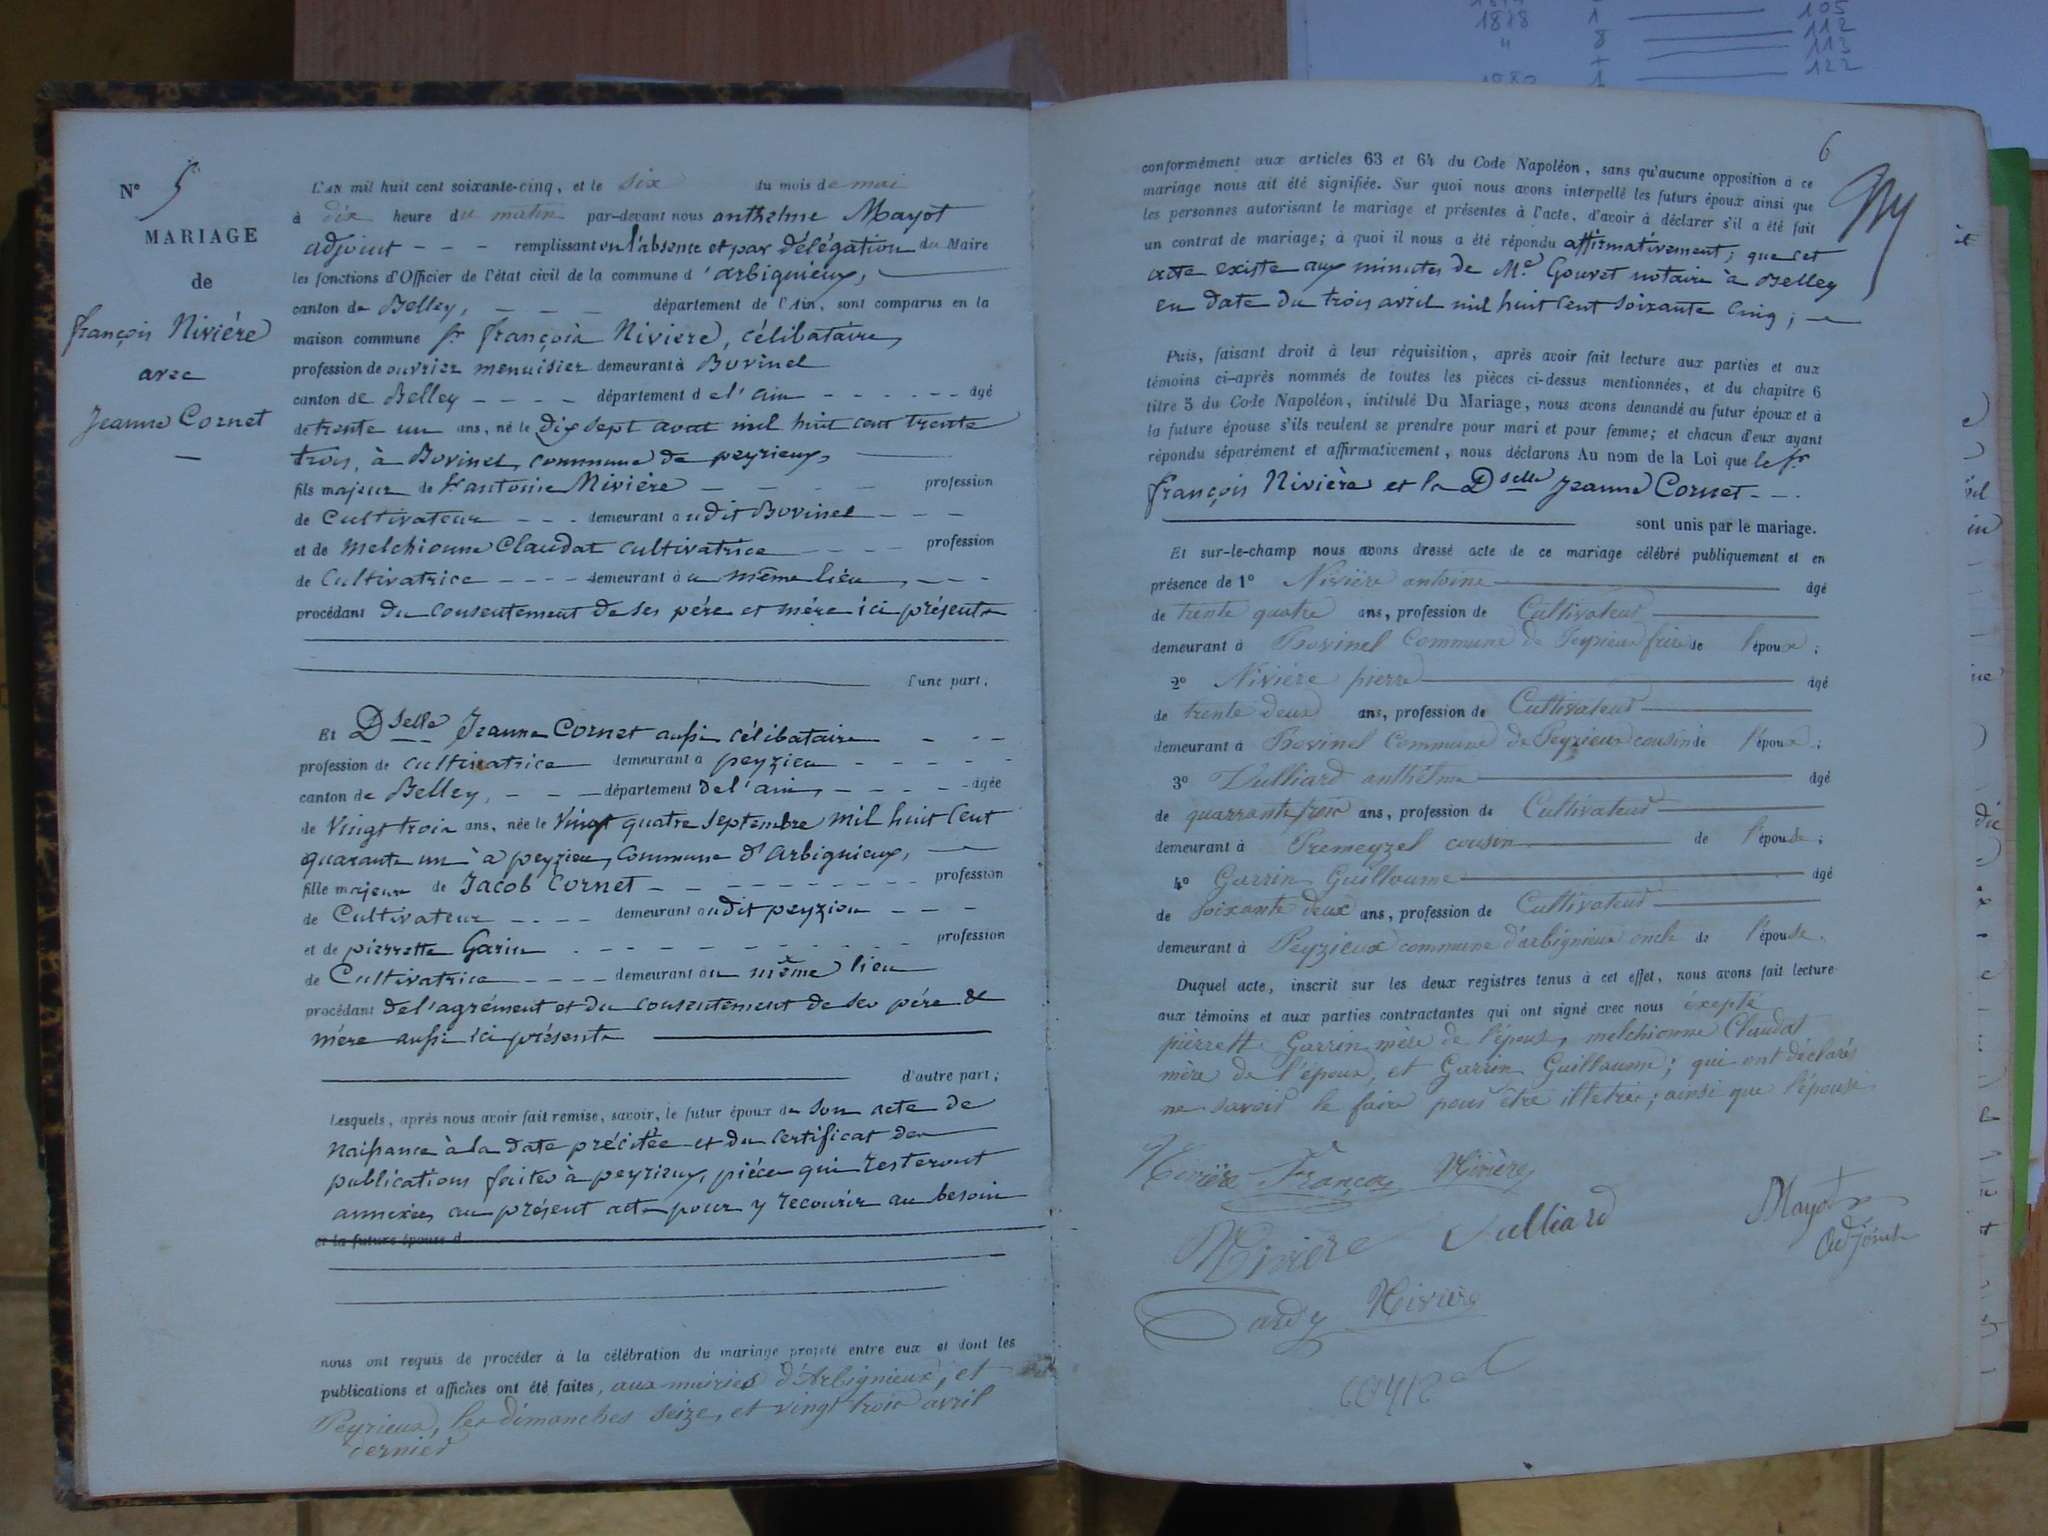 1878 1 105
" 8 112
113
1 122
N° 5
MARIAGE
de
françois Nivière
avec
Jeanne Cornet
L'AN mil huit cent soixante-cinq, et le six du mois de mai
à dix heure du matin par-devant nous anthelme Mayot
adjoint - - - remplissant en l'absence et par délégation du Maire
les fonctions d'Officier de l'état civil de la commune d'arbignieux,
canton de Belley, - - - département de l'Ain, sont comparus en la
maison commune Sr françois Niviere, célibataire,
profession de ouvrier menuisier demeurant à Bovinel
canton de Belley - - - - département de l'ain - - - - - - âgé
de trente un ans, né le dix sept aout mil huit cent trente
trois, à Bovinel, commune de peyrieux,
fils majeur de Sr antoine Nivière - - - - profession
de Cultivateur - - - demeurant audit Bovinel - - -
et de Melchionne Claudat cultivatrice - - - - profession
de Cultivatrice - - - - demeurant au même lieu, - - -
procédant du consentement de ses père et mère ici présents
l'une part.
Et Dselle Jeanne Cornet aussi célibataire - - -
profession de cultivatrice demeurant à peyzieu - - - - -
canton de Belley, - - - département de l'ain, - - - - - âgée
de Vingt trois ans, née le Vingt quatre septembre mil huit cent
quarante un à peyzieu, commune d'Arbignieux,
fille majeure de Jacob Cornet - - - - - - - - - profession
de Cultivateur - - - - demeurant audit peyzieu - - -
et de pierrette Garin - - - - - - - - - profession
de Cultivatrice - - - - demeurant au même lieu
procédant de l'agrément et du consentement de ses père &
mère aussi ici présents
d'autre part;
Lesquels, après nous avoir fait remise, savoir, le futur époux de son acte de
Naissance à la date précitée et du certificat des
publications faites à peyrieux, pièces qui resteront
annexées au présent acte pour y recourir au besoin
et la future épouse d
nous ont requis de procéder à la célébration du mariage projeté entre eux et dont les
publications et affiches ont été faites, aux mairies d'Arbignieux, et
Peyrieux, les dimanches seize, et vingt trois avril
dernier
6
conformément aux articles 63 et 64 du Code Napoléon, sans qu'aucune opposition à ce
mariage nous ait été signifiée. Sur quoi nous avons interpellé les futurs époux ainsi que
les personnes autorisant le mariage et présentes à l'acte, d'avoir à déclarer s'il a été fait
un contrat de mariage; à quoi il nous a été répondu affirmativement; que cet
acte existe aux minutes de Me Gouvet notaire à Belley
en date du trois avril mil huit cent soixante cinq;
Puis, faisant droit à leur réquisition, après avoir fait lecture aux parties et aux
témoins ci-après nommés de toutes les pièces ci-dessus mentionnées, et du chapitre 6
titre 5 du Code Napoléon, intitulé Du Mariage, nous avons demandé au futur époux et à
la future épouse s'ils veulent se prendre pour mari et pour femme; et chacun d'eux ayant
répondu séparément et affirmativement, nous déclarons Au nom de la Loi que le Sr
françois Nivière et la Dselle Jeanne Cornet - - .
sont unis par le mariage.
Et sur-le-champ nous avons dressé acte de ce mariage célébré publiquement et en
présence de 1° Nivière antoine âgé
de trente quatre ans, profession de Cultivateur
demeurant à Bovinel Commune de Peyrieux frère de l'époux;
2° Nivière pierre âgé
de trente deux ans, profession de Cultivateur
demeurant à Bovinel Commune de Peyrieux cousin de l'époux;
3° Vulliard anthelme âgé
de quarrante trois ans, profession de Cultivateur
demeurant à Premeyzel cousin de l'épouse;
4° Garrin Guillaume âgé
de soixante deux ans, profession de Cultivateur
demeurant à Peyzieux commune d'arbignieux oncle de l'épouse.
Duquel acte, inscrit sur les deux registres tenus à cet effet, nous avons fait lecture
aux témoins et aux parties contractantes qui ont signé avec nous éxepté
pierrette Garrin mère de l'épouse, melchionne Claudat
mère de l'époux, et Garrin Guillaume; qui ont déclarés
ne savoir le faire pour être illetrés; ainsi que l'épouse
Nivière François Nivière
Nivière Vulliard Mayot
Adjoint
Tardy Nivière